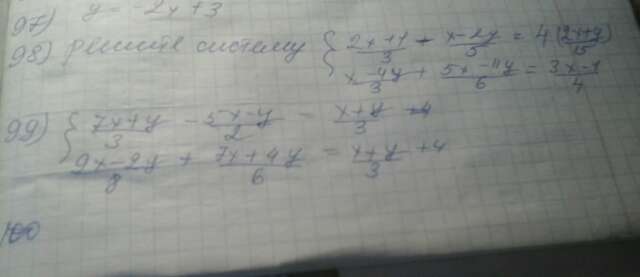 97) y = -2x+3
98) решите систему { 2x+1/3 - x-2y/5 = 4(2x+y)/15
x-4y/3 + 5x-11y/6 = 3x-1/4
99) { 7x+y/3 - 5x-y/2 = x+y/3 - 4
9x-2y/8 + 7x+4y/6 = x+y/3 +4
100